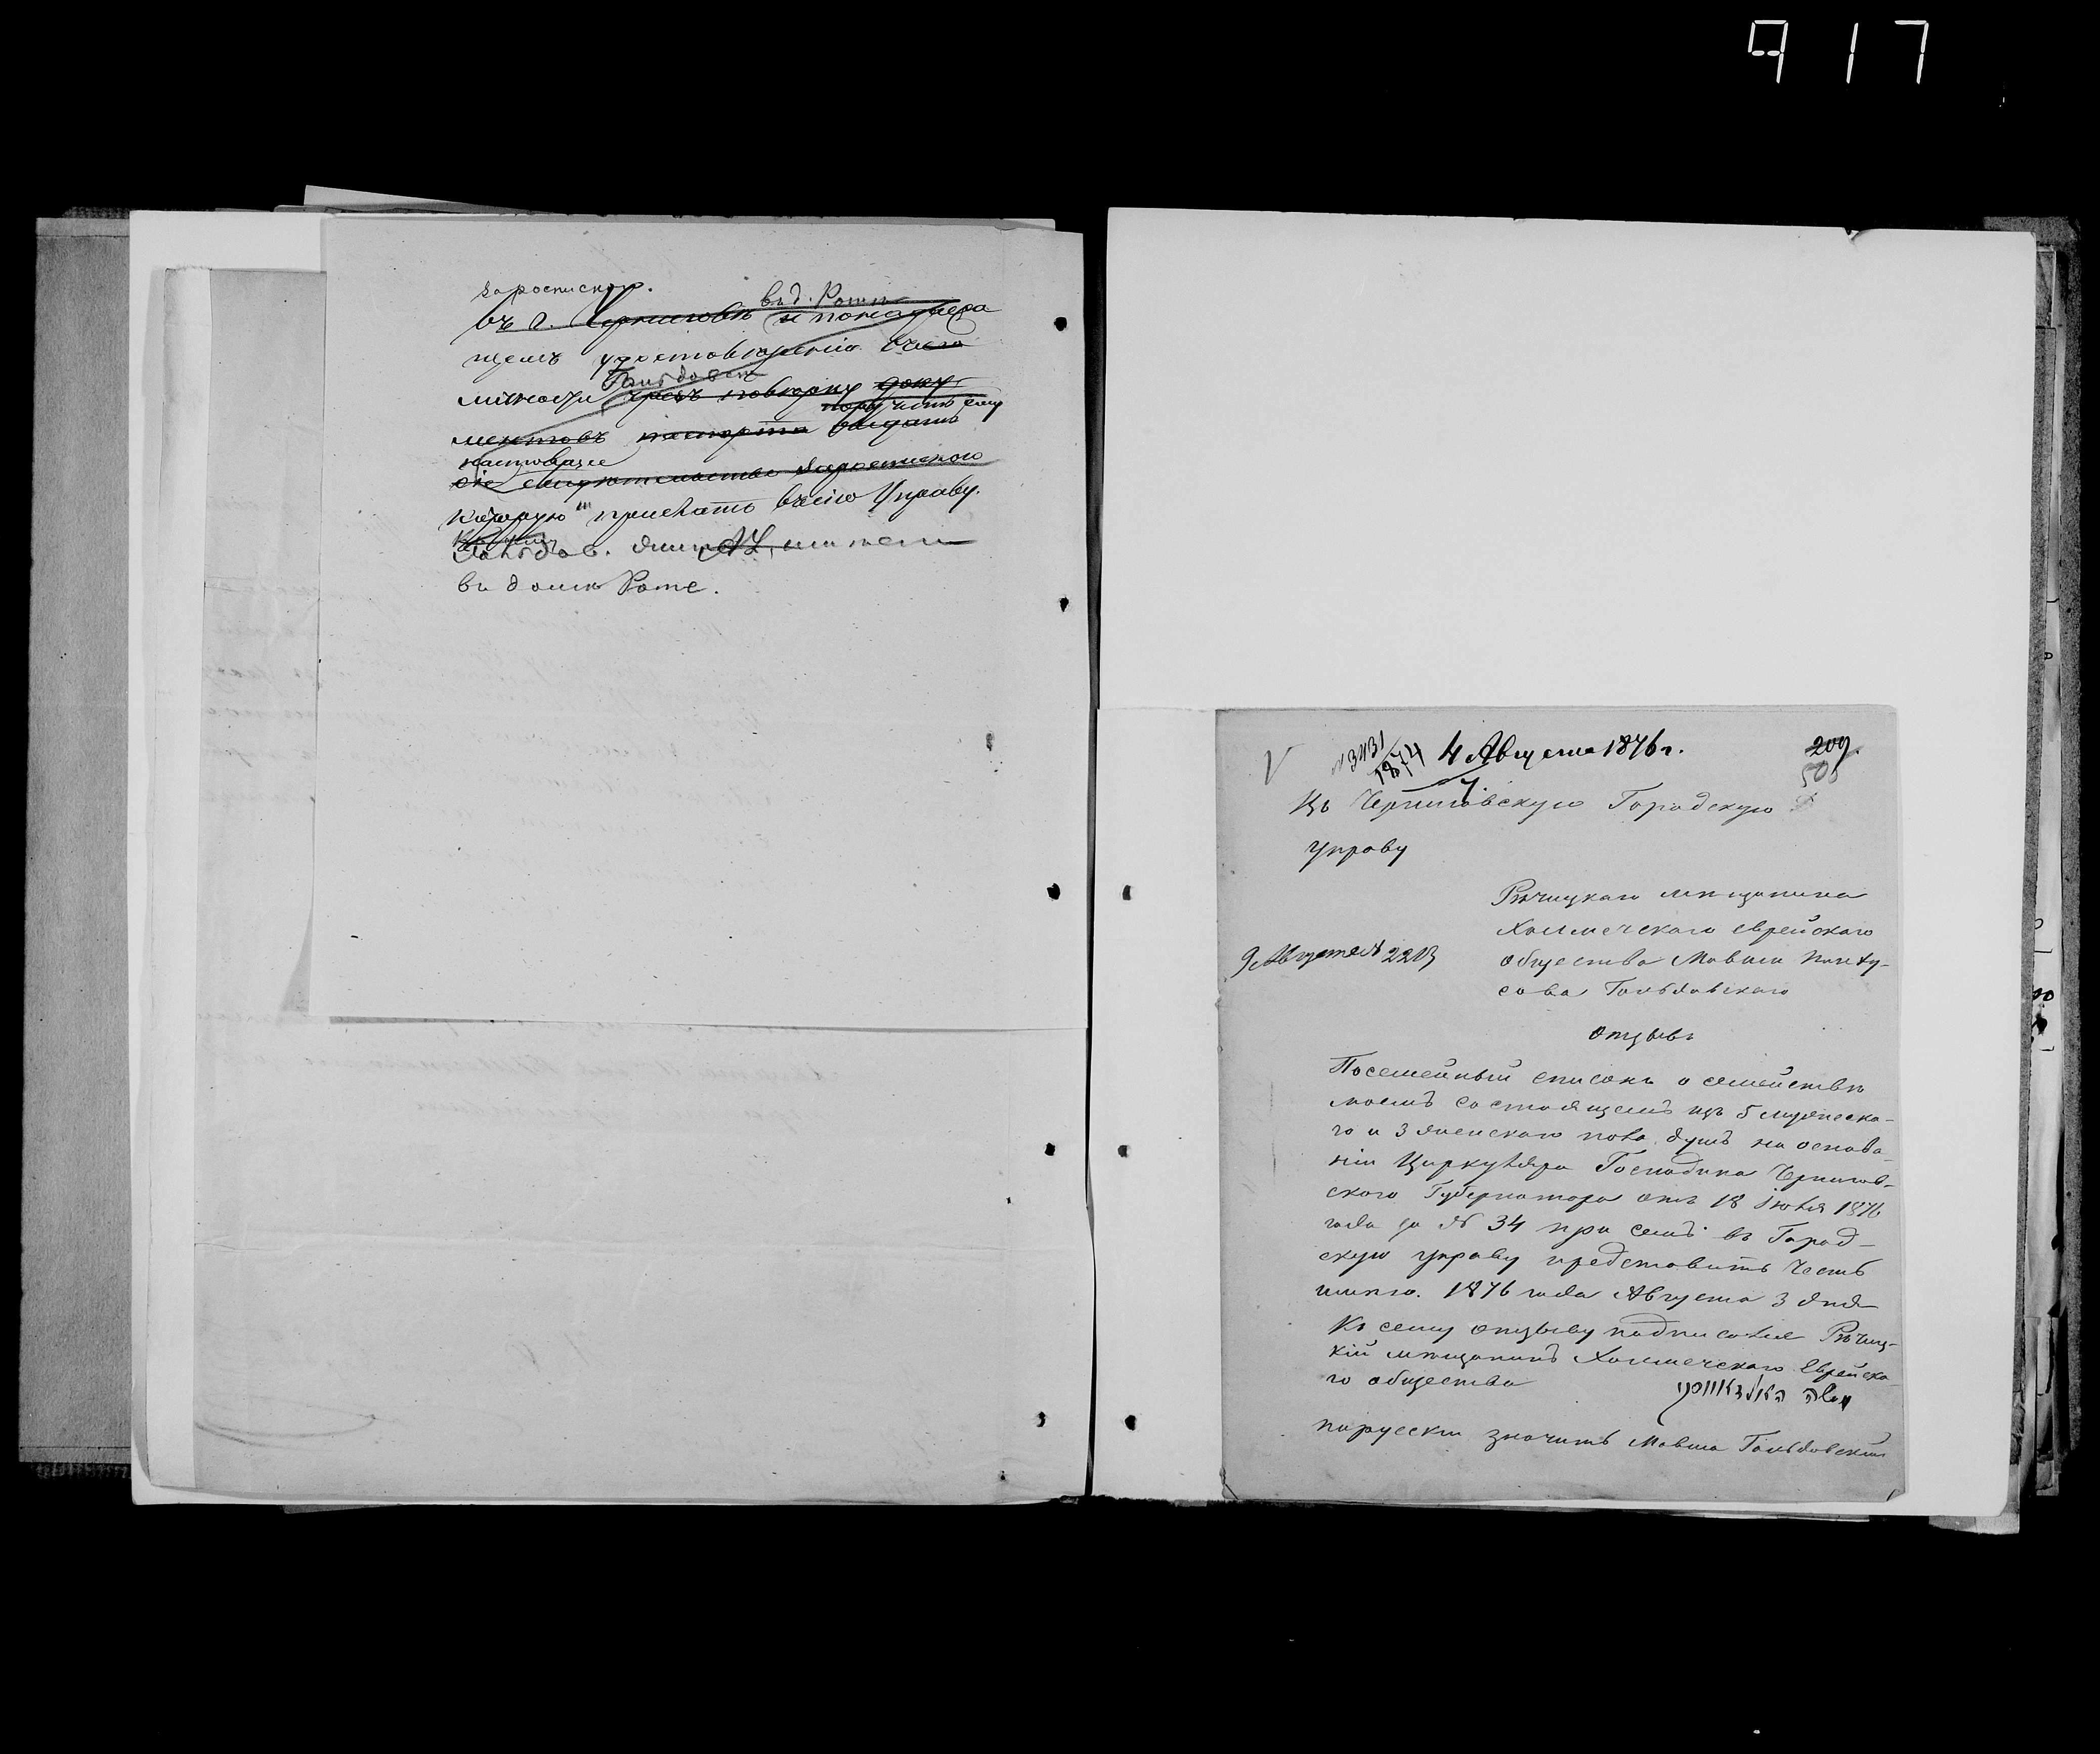 917
за роспискою.
въ д. Роти
въ г. Черниговѣ и по
щемъ удостовѣренію въ его
Гольдовск
личности чрезъ повѣрку доку
поручить ему
ментовъ паспорта выдать
настоящее
сіе свидѣтельство подъ росписку
которую присылать въ сію Управу.
Гольдов. жит
въ домѣ Роте.
№ 3431
1874
4 Августа 1876 г.
209.
505
Въ Черниговскую Городскую
управу
Рѣчицкаго мѣщанина
Холмечскаго еврейскаго
9 Августа № 2213
общества Мовши
сова Гольдовскаго
Отзывъ
Посемейный списокъ о семействѣ
моемъ состоящемъ изъ 5 мужеска-
го и 3 женскаго пола душъ на основа-
ніи Циркуляра Господина Чернигов-
скаго Губернатора отъ 18 Іюля 1876
года за № 34 при семъ въ Город-
скую управу представить честь
имѣю. 1876 года Августа 3 дня
Къ сему отзыву подписался Рѣчиц-
кій мѣщанинъ Холмечскаго Еврейска-
го общества
משה האלדאווסקי
порусски значитъ Мовша Гольдовскій